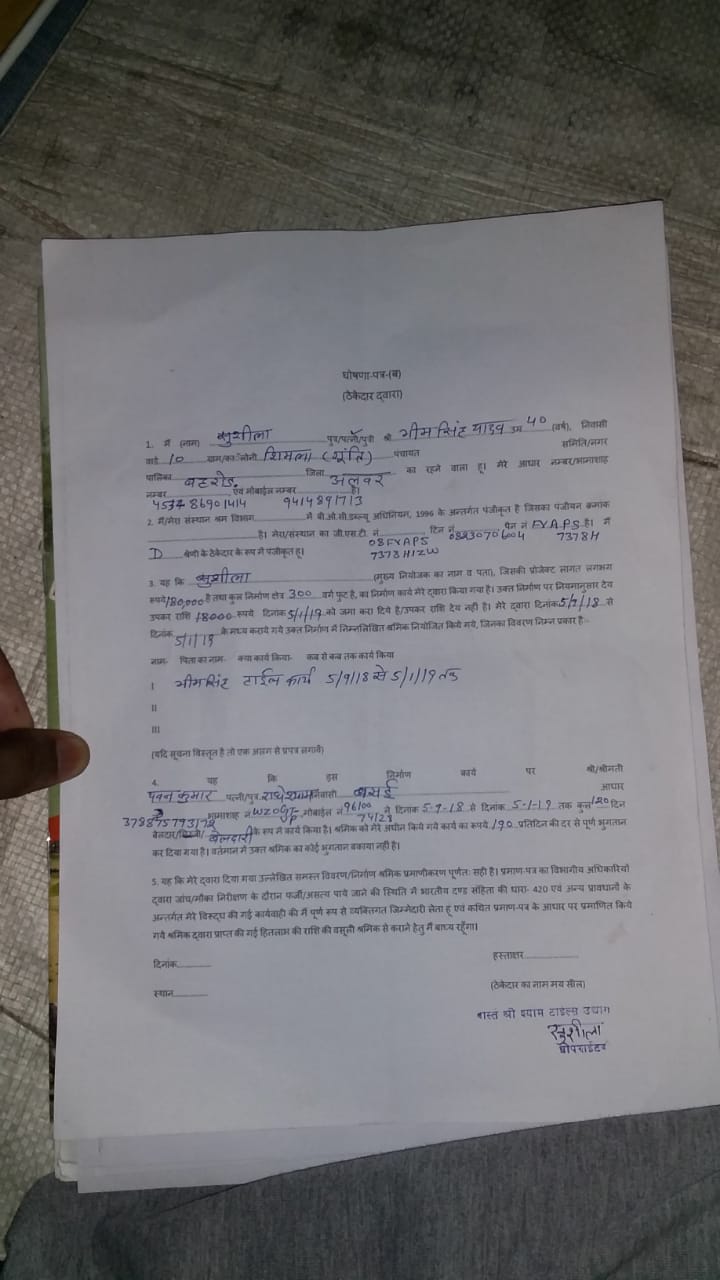 घोषणा-पत्र-(ब)
(ठेकेदार द्वारा)
1. मैं (नाम) सुशीला पुत्र/पत्नी/पुत्री श्री भीमसिंह यादव उम्र 40 (वर्ष), निवासी
वार्ड 10 ग्राम/कॉलोनी शिमला पंचायत समिति/नगर
पालिका जिला अलवर का रहने वाला हू। मेरे आधार नम्बर/भामाशाह
नम्बर एवं मोबाईल नम्बर है।
9414891713
2. मैं/मेरा संस्थान श्रम विभाग में बी.ओ.सी.डब्ल्यू अधिनियम, 1996 के अन्तर्गत पंजीकृत है जिसका पंजीयन क्रमांक
है। मेरा/संस्थान का जी.एस.टी. नं. टिन नं. पेन नं FVAPS है। मैं
7378H
D श्रेणी के ठेकेदार के रूप में पंजीकृत हू।
08FVAPS
7378H1ZW
3. यह कि सुशीला (मुख्य नियोजक का नाम व पता), जिसकी प्रोजेक्ट लागत लगभग
रूपये 180,000 है तथा कुल निर्माण क्षेत्र 300 वर्ग फुट है, का निर्माण कार्य मेरे द्वारा किया गया है। उक्त निर्माण पर नियमानुसार देय
उपकर राशि 18000 रूपये दिनांक 5/1/19 को जमा करा दिये है/उपकर राशि देय नहीं है। मेरे द्वारा दिनांक 5/9/18 से
दिनांक 5/1/19 के मध्य कराये गये उक्त निर्माण में निम्नलिखित श्रमिक नियोजित किये गये, जिनका विवरण निम्न प्रकार है:-
नाम- पिता का नाम- क्या कार्य किया- कब से कब तक कार्य किया
I भीमसिंह टाईल कार्य 5/9/18 से 5/1/19 तक
II
III
(यदि सूचना विस्तृत है तो एक अलग से प्रपत्र लगावें)
4. यह कि इस निर्माण कार्य पर श्री/श्रीमती
पवन कुमार पत्नी/पुत्र राधेश्याम निवासी बसई आधार
भामाशाह नं. मोबाईल नं 96100 ने दिनांक 5-9-18 से दिनांक 5-1-19 तक कुल 120 दिन
74128
बेलदार/ बेलदारी के रूप में कार्य किया है। श्रमिक को मेरे अधीन किये गये कार्य का रूपये 190 प्रतिदिन की दर से पूर्ण भुगतान
कर दिया गया है। वर्तमान में उक्त श्रमिक का कोई भुगतान बकाया नहीं है।
5. यह कि मेरे द्वारा दिया गया उल्लेखित समस्त विवरण/निर्माण श्रमिक प्रमाणीकरण पूर्णतः सही है। प्रमाण-पत्र का विभागीय अधिकारियों
द्वारा जांच/मौका निरीक्षण के दौरान फर्जी/असत्य पाये जाने की स्थिति में भारतीय दण्ड संहिता की धारा- 420 एवं अन्य प्रावधानों के
अन्तर्गत मेरे विरूद्ध की गई कार्यवाही की मैं पूर्ण रूप से व्यक्तिगत जिम्मेदारी लेता हू एवं कथित प्रमाण-पत्र के आधार पर प्रमाणित किये
गये श्रमिक द्वारा प्राप्त की गई हितलाभ की राशि की वसूली श्रमिक से कराने हेतु मैं बाध्य रहूँगा।
दिनांक............
हस्ताक्षर....................
स्थान............
(ठेकेदार का नाम मय सील)
वास्ते श्री श्याम टाइल्स उद्योग
सुशीला
प्रोपराईटर